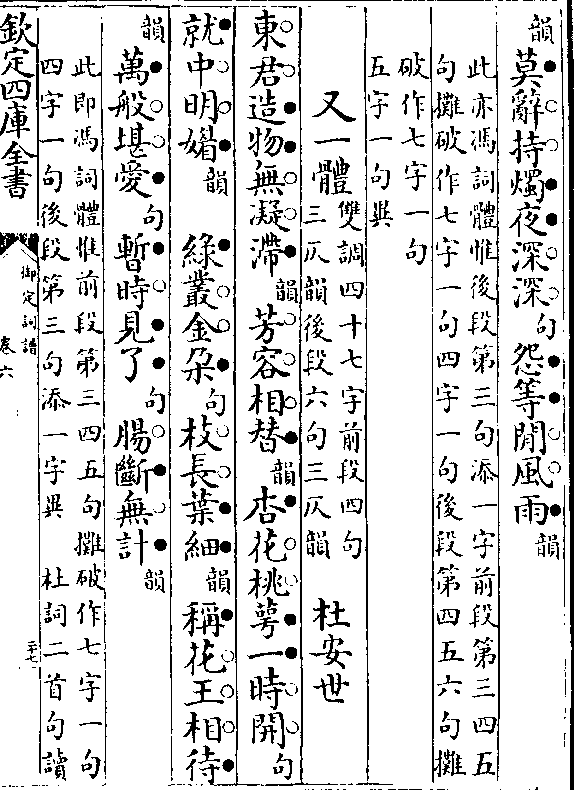 韻莫辭持燭夜深深句怨等閒風雨韻
此亦馮詞體惟後段第三句添一字前段第三四五
句攤破作七字一句四字一句後段第四五六句攤
破作七字一句
五字一句異
又一體雙調四十七字前段四句
三仄韻後段六句三仄韻杜安世
東君造物無凝滯韻芳容相替韻杏花桃萼一時開句
就中明媚韻綠叢金朶句枝長葉細韻稱花王相待
韻萬般堪愛句暫時見了句腸斷無計韻
此即馮詞體惟前段第三四五句攤破作七字一句
四字一句後段第三句添一字異杜詞二首句讀
欽定四庫全書
御定詞譜
卷六
三十七